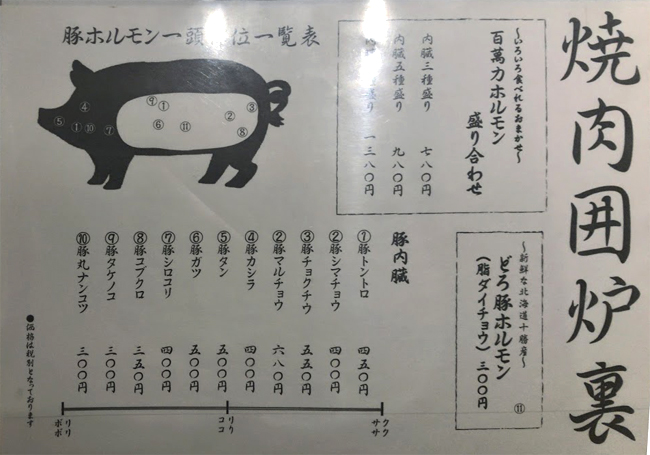 焼肉囲炉裏
～いろいろ食べれるおまかせ～
百萬力ホルモン
盛り合わせ
内臓三種盛り 七八〇円
内臓五種盛り 九八〇円
種盛り 一三八〇円
～新鮮な北海道十勝産～
どろ豚ホルモン
(脂ダイチョウ) 三〇〇円
⑪
豚ホルモン一頭 位一覧表
④
⑤ ① ⑩ ⑦
⑨ ①
⑥ ⑪
② ③
⑧
豚内臓
①豚トントロ 四五〇円
②豚シマチョウ 四〇〇円
③豚チョクチウ 五五〇円
②豚マルチョウ 六八〇円
④豚カシラ 四〇〇円
⑤豚タン 五〇〇円
⑥豚ガツ 五〇〇円
⑦豚シロコリ 四〇〇円
⑧豚コブクロ 三五〇円
⑨豚タケノコ 三〇〇円
⑩豚丸ナンコツ 三〇〇円
クク
ササ
リリ
ココ
リリ
ポポ
●価格は税別となっております